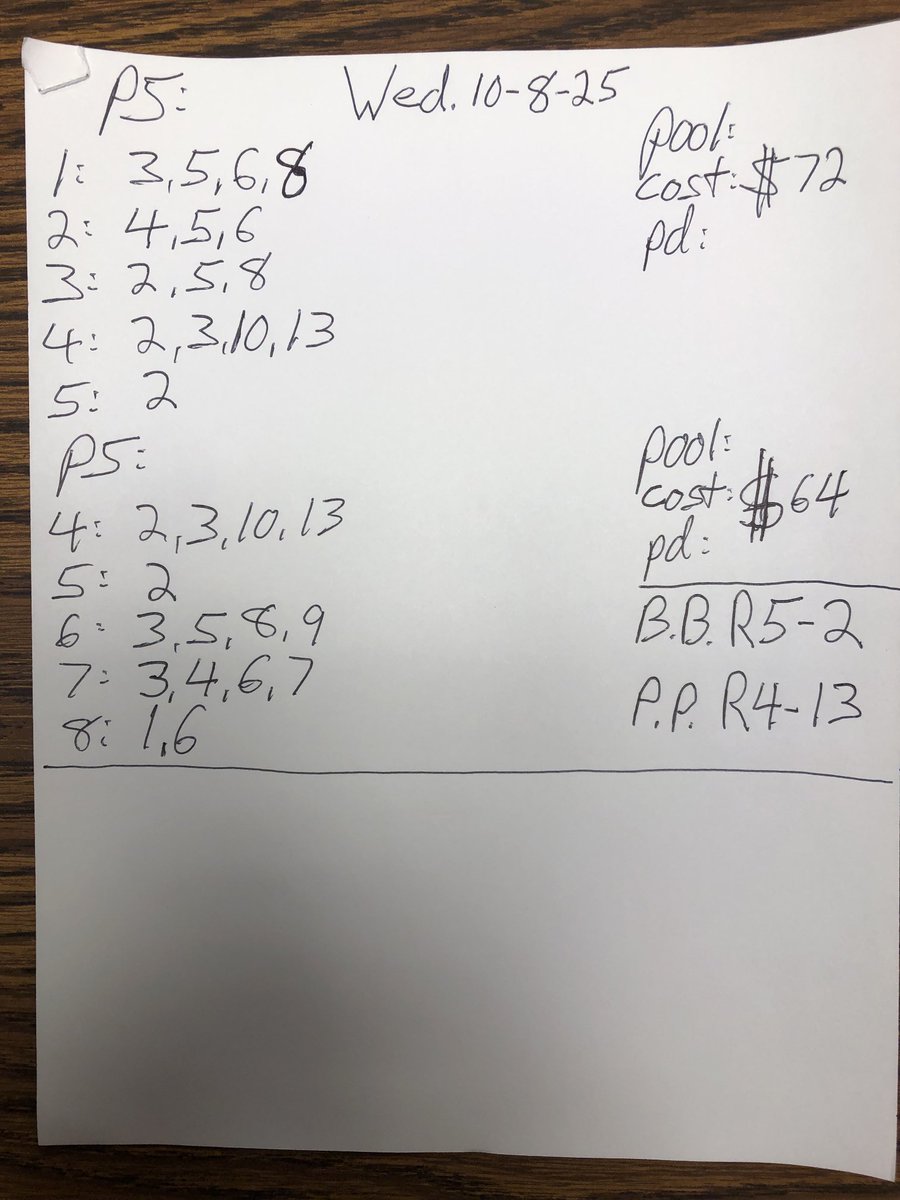 P5: Wed. 10-8-25
1: 3,5,6,8
2: 4,5,6
3: 2,5,8
4: 2,3,10,13
5: 2
pool:
cost: $72
pd:
P5:
4: 2,3,10,13
5: 2
6: 3,5,8,9
7: 3,4,6,7
8: 1,6
pool:
cost: $64
pd:
B.B. R5-2
P.P. R4-13